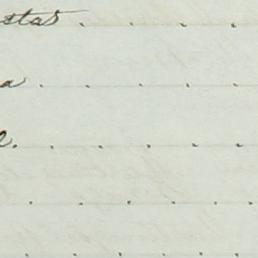 stas . . . .
a . . . . .
e. . . . . .
. . . . . .
. . . . . .